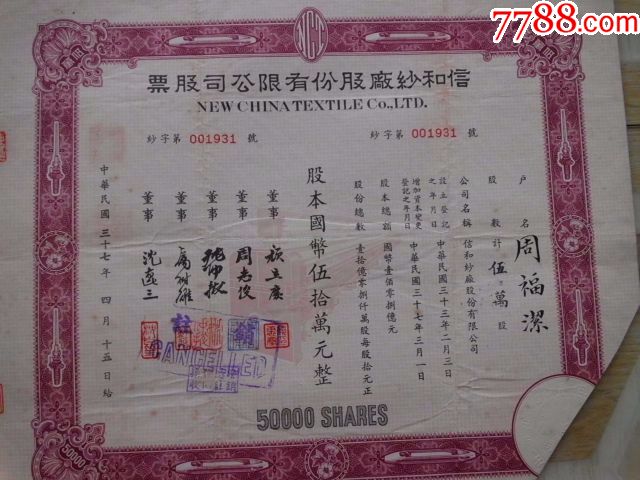 7788.com
NCT
信和紗廠股份有限公司股票
NEW CHINA TEXTILE Co., LTD.
紗字第 001931 號
紗字第 001931 號
戶名 周福潔
股數計 伍萬 股
公司名稱 信和紗廠股份有限公司
設立登記之年月日 中華民國三十三年二月三日
增加資本變更登記之年月日 中華民國三十七年三月一日
股本總額 國幣壹佰零捌億元
股份總數 壹拾億零捌仟萬股每股拾元正
股本國幣伍拾萬元整
董事
董事 周志俊
董事
董事
董事 沈遠三
中華民國三十七年四月十五日給
註銷
CANCELLED
50000 SHARES
50000